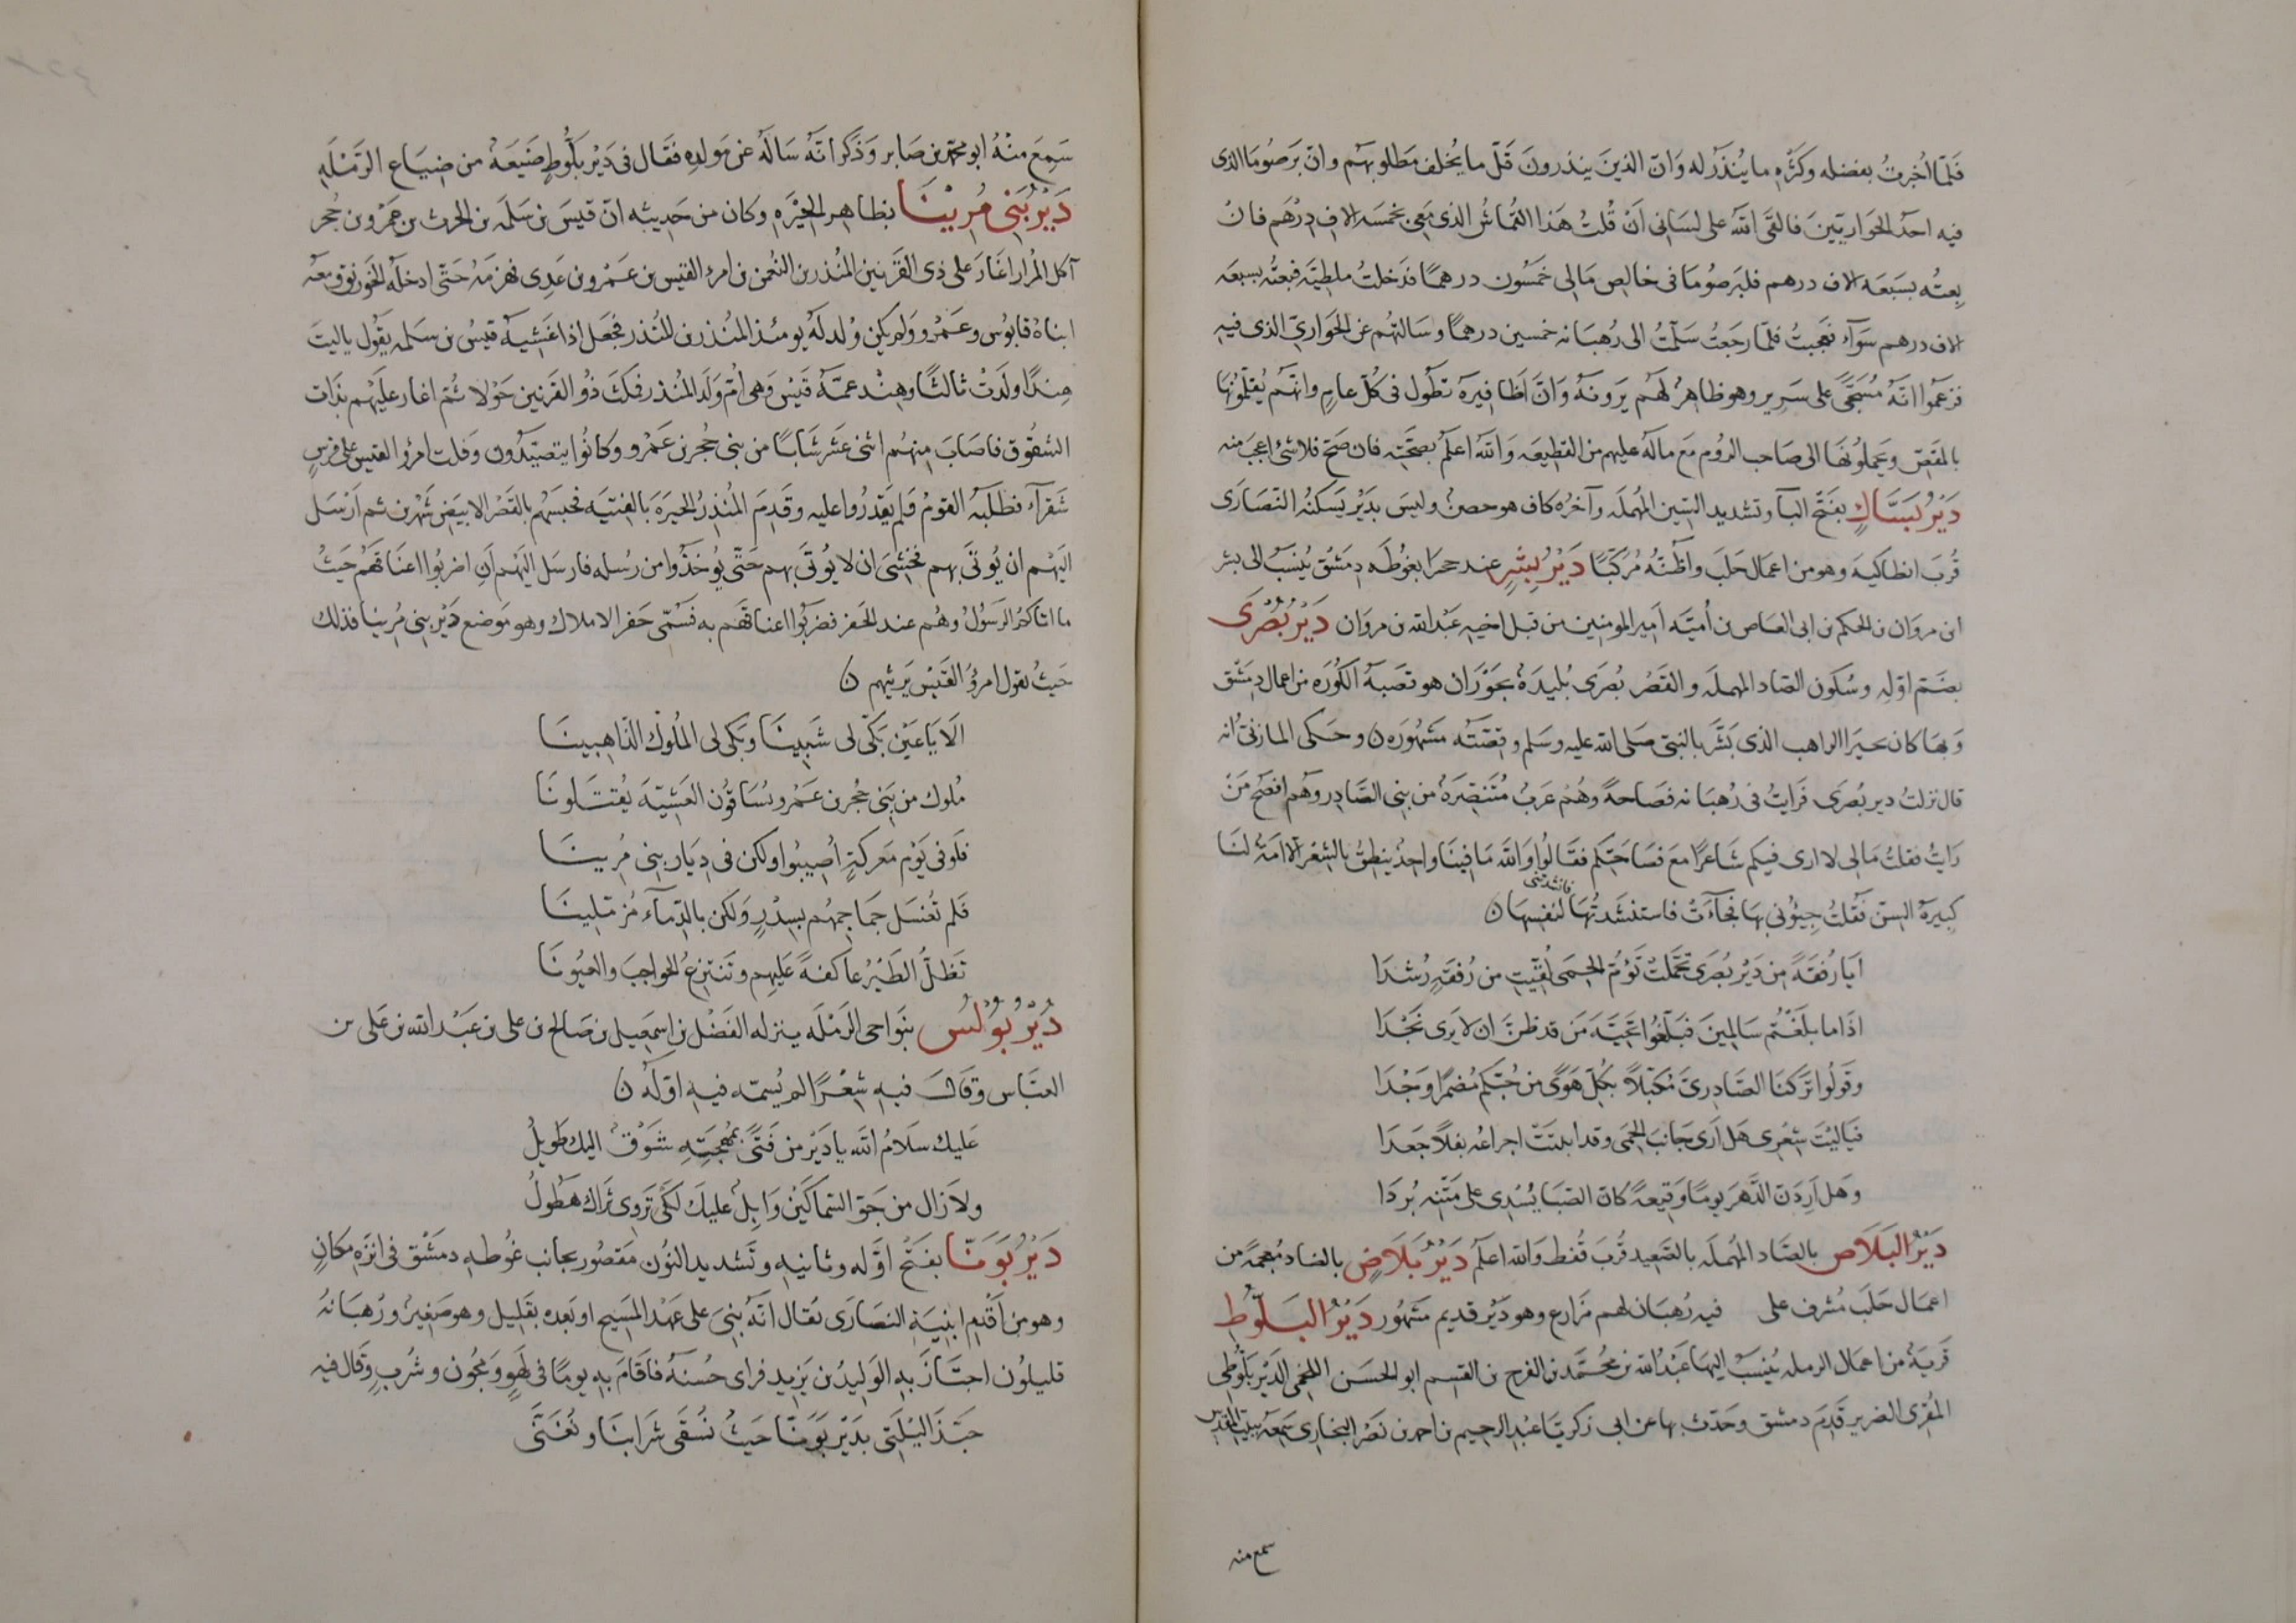 فَلَمّا اُخبِرتُ بفضله وكَثْرَةِ ما يُنذَرُ له وَانّ الذينَ ينذرونَ قَلّ ما يُخلف مَطلوبهُم وانّ بَرصُومَا الذى
فيه احَدُ الحَوَاريّينَ فالقَى اللّه على لسَانى اَنْ قُلتُ هَذا القُماشُ الذى مَعى بخمسَه الاف دِرْهَم فانْ
بِعتُه بسَبعَه الاف درهم فلبَرصُومَا فى خالِصِ مَالى خَمسُون درهمًا فدَخلتُ ملطيّة فبعتُه بسبعَه
الاف درهم سَوَآء فعجبتُ فلمّا رجَعتُ سَلّمتُ الى رُهبَانه خمسين درهمًا وسَالتهُم عن الحَوَاريّ الذى فيهِ
فزعَموا انّهُ مُسَجّى على سَرِير وهو ظاهِرُ لهُم يَرونهُ وَانَّ اَظافيرَهُ تطُول فى كُلّ عامٍ وانّهُم يُقلّمُونهَا
بالمقَصّ ويَحملُونهَا الى صَاحب الرُوم مَع ماله عليهم من القطيعَه وَاللّه اعلَمُ بصحّتِه فان صَحّ فلا شئ اعجبَ منه
دَيْرُ بَسَّاكٍ بفَتح البآ وتشديد السّين المُهملَه وآخرُه كاف هو حصنٌ وليسَ بدَيْر يَسكنُه النّصَارَى
قُربَ انطاكيَه وهو من اعمال حَلَبَ واظنّهُ مُركّبًا دَيْرُ بِشْرٍ عند حجرا بغوُطَه دِمَشق يُنسَبُ الى بشر
ابن مروَان بن الحكم بن ابى العَاص بن اُميّه اَمير المومنين من قبل اخيه عَبد الله بن مروَان دَيْرُ بُصْرَى
بضَم اوّلِه وسُكون الصّاد المهملَه والقَصْر بُصرَى بُليدَةٌ بحَوْرَان هو قصَبَةُ الكُورَه من اعمال دِمَشق
وَبهَا كان بحيرَا الراهب الذى بَشّرَ بالنبىّ صَلى الله عليه وسَلم وقصّته مَشهُورَه ن وحَكى المازنىّ انه
قال نزلتُ دير بُصرَى فَرايتُ فى رُهبَانه فصَاحةً وهُم عَربُ مُتنَصِّرَةٌ من بنى الصَّادِر وهُم افصَحُ مَنْ
رَايتُ فقلتُ مَالى لا ارى فيكم شاعرًا مَعَ فصَاحتكم فقالُوا وَاللّه مَا فينَا واحدٌ ينطقُ بالشعر الا امَةٌ لنَا
كبيرةُ السنّ فقُلتُ جِيُونى بهَا فجآءَتْ فاستنشَدتُهَا فانشدتنى لنفسِهَا ن
اَيا رُفقَةً مِن دَيْرِ بُصرَى تحَمّلَتْ تَؤمّ الحِمَى لُقّيتِ من رُفقَةٍ رُشدَا
اذَا ما بلَغتُم سَالمِينَ فبَلّغُوا تحيّةَ مَن قد ظنَّ ان لا يَرى نَجْدَا
وقُولُوا تَركنَا الصَّادِرِىَّ مُكبّلاً بكُلّ هَوًى من حُبّكم مُضمرًا وَجْدَا
فيَاليْتَ شِعْرِى هَل اَرى جَانبَ الحِمَى وقد ابنتَتْ اجراعُه بقلاً جَعدَا
وَهل اَرِدَن الدَّهرَ يومًا وَقيعةً كانَ الصّبَا يُسْدِى على مَتْنِه بُردَا
دَيْرُ البَلاَصِ بالصَّاد المُهملَه بالصَّعِيد قُربَ قُفط وَالله اعلَمُ دَيْرُ بَلاَضٍ بالضاد مُعجمَةً من
اعمَال حَلبَ مُشرف على فيه رُهبَان لهم مَزَارع وهو دَيْر قديم مَشهُور دَيْرُ البَلّوُطِ
قَريةٌ من اعمَال الرمله يُنسَبُ اليهَا عَبْدُ الله بن مُحَمَّد بن الفرج بن القسم ابو الحسَن اللخمى الدَّيْر بلّوُطى
المُقرِى الضرير قَدِمَ دمشق وحَدّث بهَا عن ابى زكريّا عَبْد الرحيم بن احمد بن نَصْر البخارى سَمِعَهُ ببيت المقدس
سمع منه
سَمِعَ مِنْهُ ابو محمّد بن صَابر وَذَكرَ انّهُ سَالهُ عن مَولدِه فقَال فى دَيْر بَلُّوطٍ ضَيْعَةٌ من ضِيَاع الرّمْلَه
دَيْرُ بَنِى مُرِيْنَا بظاهرِ الحِيْرَه وكان من حَدِيثه انّ قيسَ بن سَلمَه بن الحرث بن عَمْرو بن حُجر
آكل المُرار اغَارَ على ذى القَرْنين المُنذر بن النُعمن بن امرء القيس بن عَمْرو بن عَدِى فهزمَهُ حَتّى ادخلَهُ الخَوَرنق ومعَه
ابناهُ قابوُس وعَمْرو وَلم يكن وُلد لهُ يومئذ المُنذر بن المُنذر فجَعل اذا غَشِيَهُ قيسُ بن سَلمه يَقُول ياليتَ
هِندًا ولَدَتْ ثالثًا وهِنْد عمّةُ قَيْس وَهى اُمّ وَلَد المُنذر فمكَثَ ذُو القَرْنين حَوْلا ثُمّ اغار علَيْهم بذَات
الشقُوق فاصَابَ مِنهُم اثنى عَشر شَابًا من بنى حُجر بن عَمْرو وكانُوا يتصَيّدُون وَفلت امرُؤ القيس على فرسٍ
شَقْرآء فطَلبَهُ القومُ فَلم يَقدِرُوا عليه وقَدِمَ المُنذِرُ الحيرَهَ بالفتيَه فحبسَهُم بالقَصْر الابيَض شَهْرين ثم اَرْسَل
اليَهْم ان يُوتَى بهم فخَشِىَ ان لا يُوتَى بهم حَتّى يُوخَذُوا من رُسله فارسَل اليَهْم اَن اضربُوا اعنَاقَهُم حَيثُ
ما اتاكمُ الرَسُولُ وهُم عند الجَفر فضَربُوا اعناقهُم به فسُمّى جَفر الاملاك وهو مَوضع دَيْر بنى مُرينا فذلك
حَيثُ يقول امرُؤُ القَيْسِ يَرثيهم ن
الَا يَا عَيْن بَكّى لى شَبِينَا وَبَكى لى المُلوكَ الذّاهِبينَا
مُلوك من بَنى حُجر بن عَمْرو يُسَاقُون العَشِيّةَ يُقتَلونَا
فلَو فى يَوْم مَعركةٍ اُصِيبُوا ولكن فى دِيَار بنى مُرِينَا
فَلم تُغسَل جمَاجِمهُم بسِدْرٍ وَلكن بالدّمآء مُزمّلينَا
تَظلُّ الطَيْرُ عاكفةً عَليهم وَتَنتزعُ الحواجبَ والعيُونَا
دَيْرُ بُوْلُسَ بنَواحى الرَمْلَه ينزله الفَضْل بن اِسمَعِيل بن صَالح بن على بن عَبْد الله بن عَلى بن
العبَّاس وقَال فيهِ شِعْرًا لم يُسمّه فيهِ اوّلَهُ ن
عَليك سَلامُ اللّه يا دَيْر من فَتًى بمُهجَتِهِ شَوْقٌ اليك طَوِيلُ
ولاَ زال من جَوّ السّماكَيْن وَابِلٌ عليكَ لكَى تَروِى ثَرَاك هَطُولُ
دَيْرُ بَوَنّا بفَتْحُ اوّله وثانيهِ وتَشديد النوُن مَقصُور بجانب غُوطهِ دمَشق فى انزَهِ مكانٍ
وهو من اَقْدَمِ ابنِيَةِ النصَارَى يقال انّهُ بُنِىَ على عَهْد المَسِيح او بَعده بقَلِيل وهو صَغِيرٌ ورُهبَانهُ
قليلُون اجتَازَ بهِ الوَلِيدُ بن يَزِيد فراى حُسنَهُ فاقَامَ بهِ يومًا فى لهوٍ وَمجُون وشُربٍ وقَال فيه
حَبّذَا لَيْلَتِى بدَيْر بَوَنّا حَيثُ نُسقَى شرَابنَا ونُغَنَّى